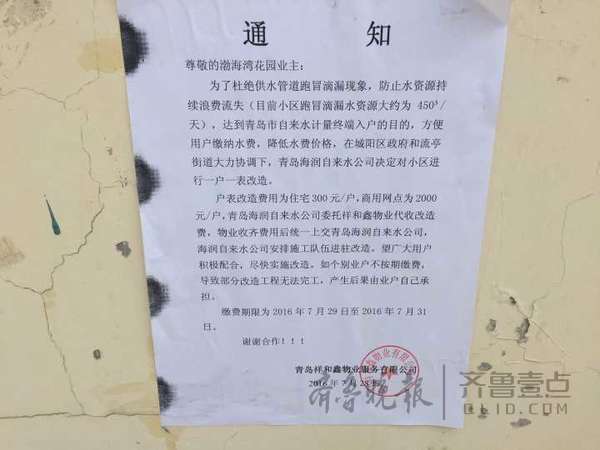 通 知
尊敬的渤海湾花园业主：
为了杜绝供水管道跑冒滴漏现象，防止水资源持
续浪费流失（目前小区跑冒滴漏水资源大约为 450³/
天），达到青岛市自来水计量终端入户的目的，方便
用户缴纳水费，降低水费价格，在城阳区政府和流亭
街道大力协调下，青岛海润自来水公司决定对小区进
行一户一表改造。
户表改造费用为住宅300元/户，商用网点为2000
元/户，青岛海润自来水公司委托祥和鑫物业代收改造
费，物业收齐费用后统一上交青岛海润自来水公司，
海润自来水公司安排施工队伍进驻改造。望广大用户
积极配合、尽快实施改造，如个别业户不按期缴费，
导致部分改造工程无法完工，产生后果由业户自己承
担。
缴费期限为2016年7月29日至2016年7月31
日。
谢谢合作！！！
青岛祥和鑫物业服务有限公司
2016年7月28日
齐鲁晚报
齐鲁壹点
QLID.COM